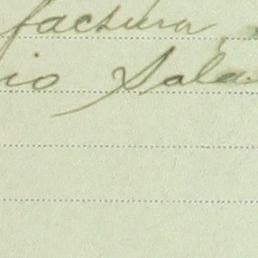 factura
io Sala